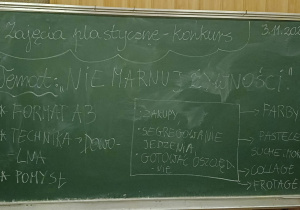 Zajęcia plastyczne - konkurs
3.11.20
Temat: "NIE MARNUJ ŻYWNOŚCI."
* FORMAT A3
* TECHNIKA → DOWO-
-LNA
* POMYSŁ
ZAKUPY
• SEGREGOWANIE
JEDZENIA,
• GOTOWAĆ OSZCZĘD-
-NIE
→ FARBY
→ PASTELE
SUCHE I MOK
→ COLLAGE
→ FROTAGE